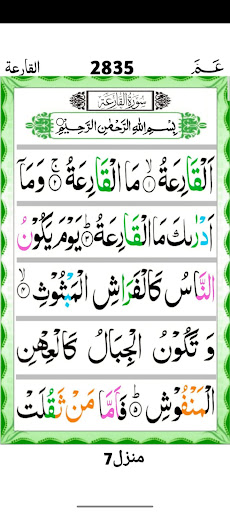 القارعة 2835 عَمَّ
سُوْرَةُ الْقَارِعَةِ
بِسْمِ اللهِ الرَّحْمٰنِ الرَّحِيْمِ
اَلْقَارِعَةُ ۙ۝۱ مَا الْقَارِعَةُ ۚ۝۲ وَمَاۤ
اَدْرٰىكَ مَا الْقَارِعَةُ ؕ۝۳ يَوْمَ يَكُوْنُ
النَّاسُ كَالْفَرَاشِ الْمَبْثُوْثِ ۙ۝۴
وَ تَكُوْنُ الْجِبَالُ كَالْعِهْنِ
الْمَنْفُوْشِ ؕ۝۵ فَاَمَّا مَنْ ثَقُلَتْ
منزل7